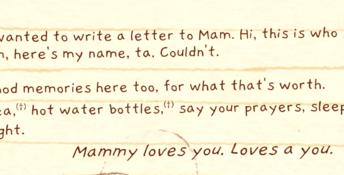 wanted to write a letter to Mam. Hi, this is who
, here's my name, ta. Couldn't.
memories here too, for what that's worth.
(†) hot water bottles,(†) say your prayers, sleep
Mammy loves you. Loves a you.